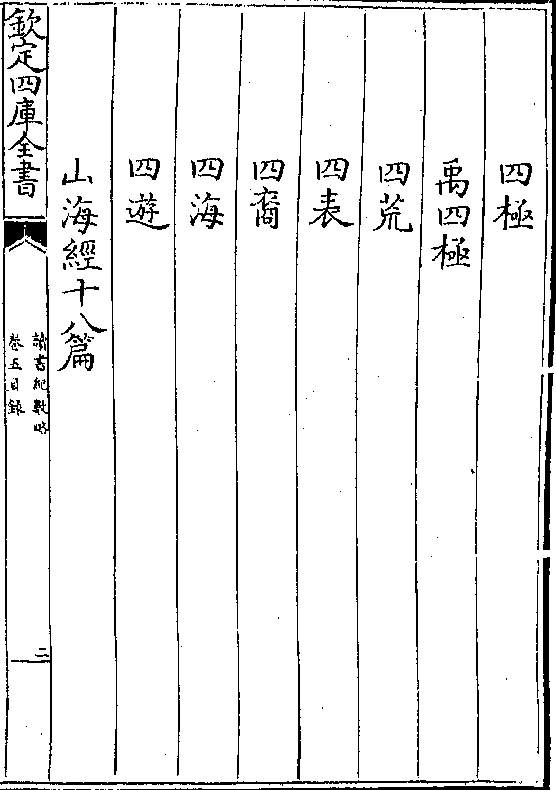 四極
禹四極
四荒
四表
四裔
四海
四遊
山海經十八篇
欽定四庫全書
讀書紀數略
卷五目録
二